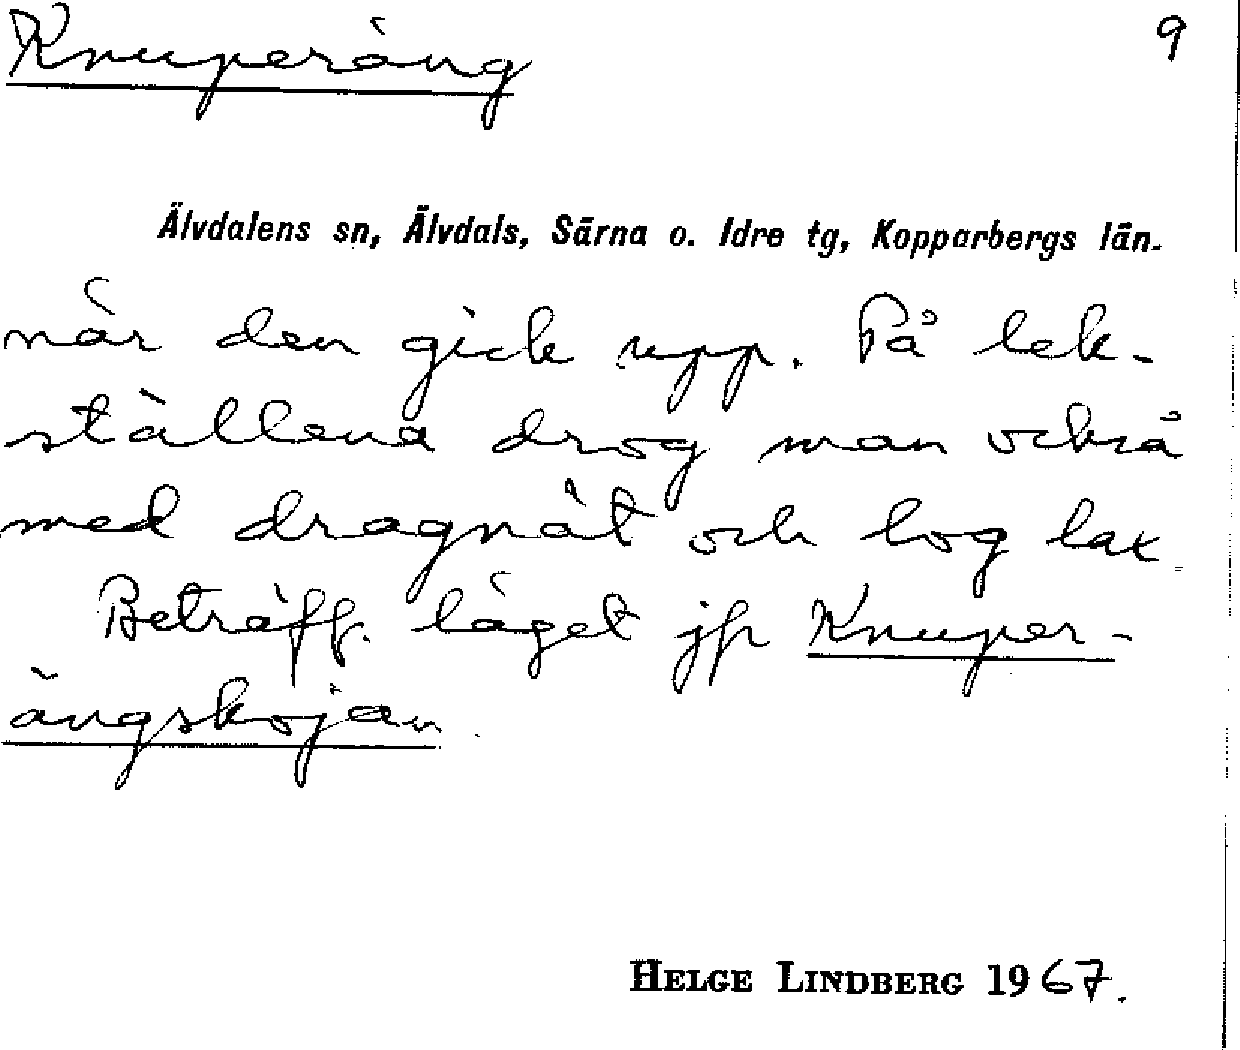 Knuperäng 9
Älvdalens sn, Älvdals, Särna o. Idre tg, Kopparbergs län.
när den gick upp. På lek-
ställena drog man också
med dragnät och tog lax.
Beträff. läget jfr Knuper-
ängskojan.
HELGE LINDBERG 1967.